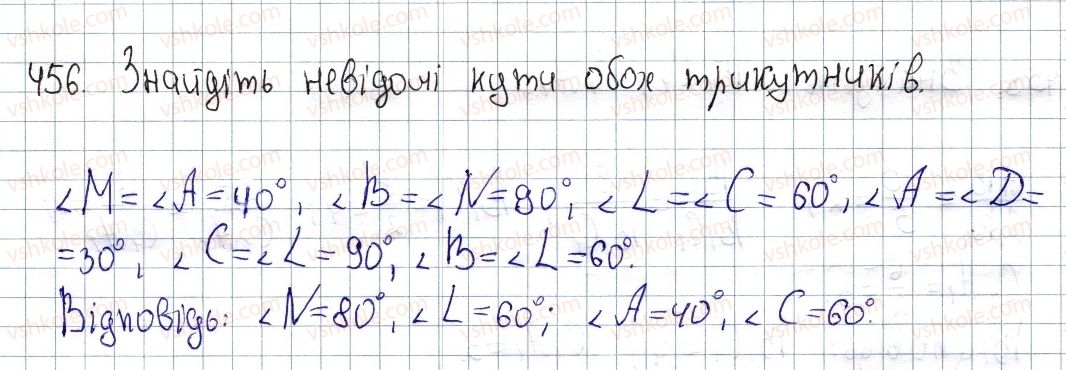 456. Знайдіть невідомі кути обох трикутників.
∠M = ∠A = 40°, ∠B = ∠N = 80°, ∠L = ∠C = 60°, ∠A = ∠D =
= 30°, ∠C = ∠L = 90°, ∠B = ∠L = 60°.
Відповідь: ∠N = 80°, ∠L = 60°; ∠A = 40°, ∠C = 60°.